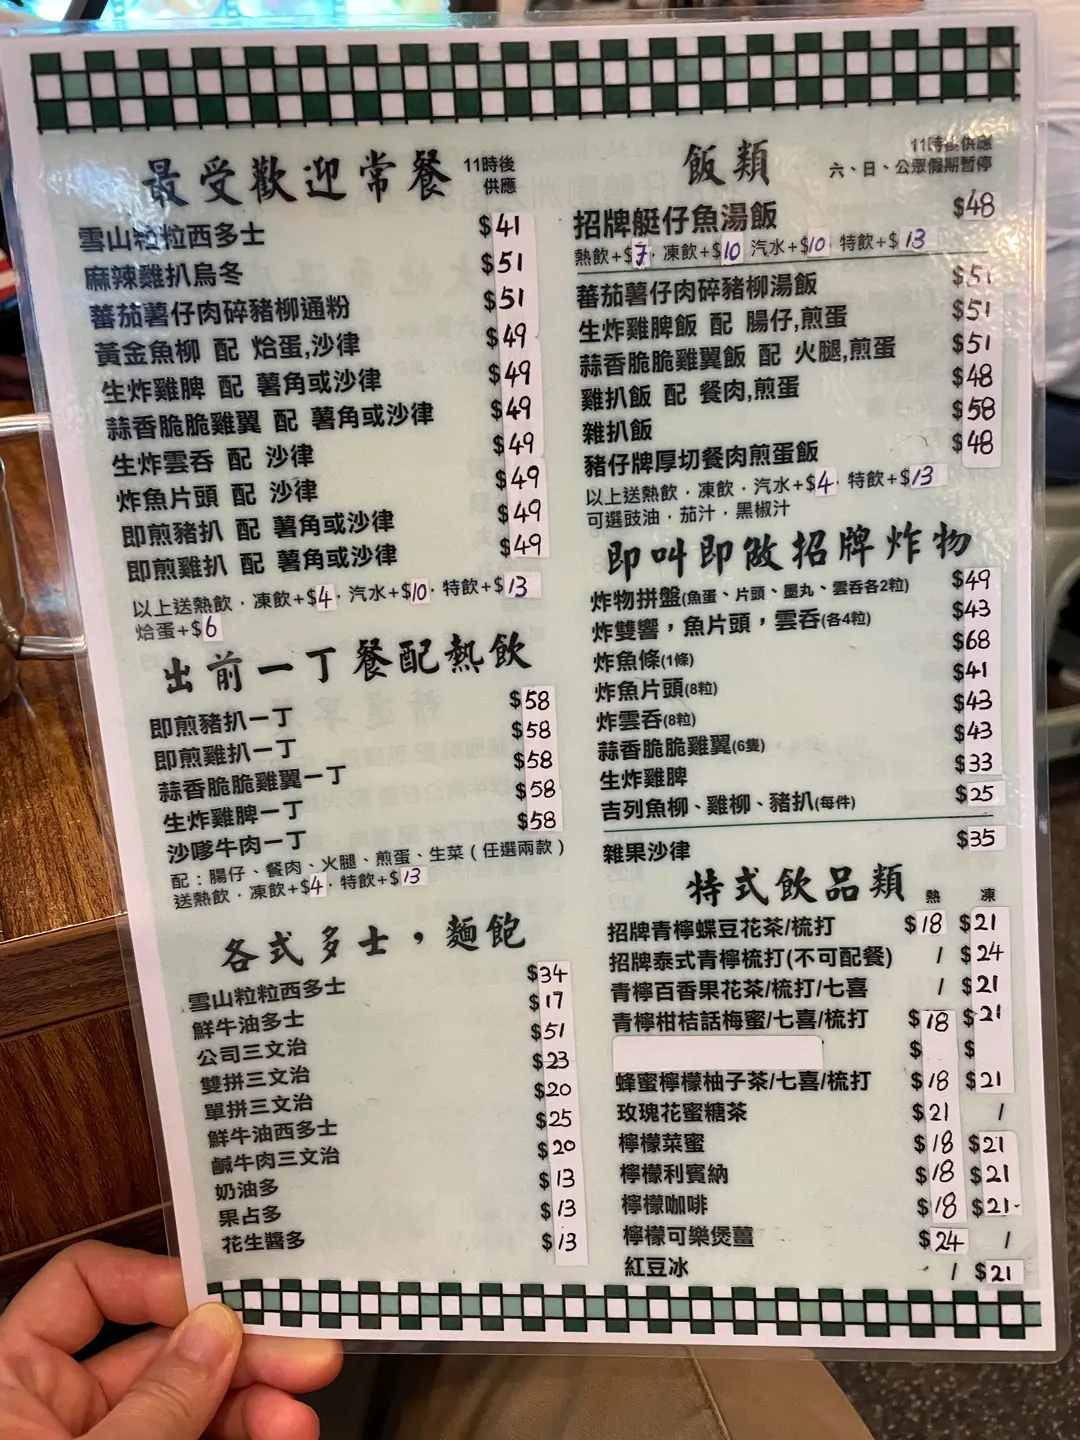 最受歡迎常餐 11時後供應
雪山粒粒西多士 $41
麻辣雞扒烏冬 $51
蕃茄薯仔肉碎豬柳通粉 $51
黃金魚柳 配 烚蛋,沙律 $49
生炸雞脾 配 薯角或沙律 $49
蒜香脆脆雞翼 配 薯角或沙律 $49
生炸雲吞 配 沙律 $49
炸魚片頭 配 沙律 $49
即煎豬扒 配 薯角或沙律 $49
即煎雞扒 配 薯角或沙律 $49
以上送熱飲．凍飲+$4．汽水+$10．特飲+$13
烚蛋+$6
出前一丁餐配熱飲
即煎豬扒一丁 $58
即煎雞扒一丁 $58
蒜香脆脆雞翼一丁 $58
生炸雞脾一丁 $58
沙嗲牛肉一丁 $58
配：腸仔、餐肉、火腿、煎蛋、生菜（任選兩款）
送熱飲．凍飲+$4．特飲+$13
各式多士，麵飽
雪山粒粒西多士 $34
鮮牛油多士 $17
公司三文治 $51
雙拼三文治 $23
單拼三文治 $20
鮮牛油西多士 $25
鹹牛肉三文治 $20
奶油多 $13
果占多 $13
花生醬多 $13
飯類 11時後供應
六、日、公眾假期暫停
招牌艇仔魚湯飯 $48
熱飲+$7．凍飲+$10 汽水+$10．特飲+$13
蕃茄薯仔肉碎豬柳湯飯 $51
生炸雞脾飯 配 腸仔,煎蛋 $51
蒜香脆脆雞翼飯 配 火腿,煎蛋 $51
雞扒飯 配 餐肉,煎蛋 $48
雜扒飯 $58
豬仔牌厚切餐肉煎蛋飯 $48
以上送熱飲．凍飲．汽水+$4．特飲+$13
可選豉油．茄汁．黑椒汁
即叫即做招牌炸物
炸物拼盤(魚蛋、片頭、墨丸、雲吞各2粒) $49
炸雙響，魚片頭，雲吞(各4粒) $43
炸魚條(1條) $68
炸魚片頭(8粒) $41
炸雲吞(8粒) $43
蒜香脆脆雞翼(6隻) $43
生炸雞脾 $33
吉列魚柳、雞柳、豬扒(每件) $25
雜果沙律 $35
特式飲品類 熱 凍
招牌青檸蝶豆花茶/梳打 $18 $21
招牌泰式青檸梳打(不可配餐) / $24
青檸百香果花茶/梳打/七喜 / $21
青檸柑桔話梅蜜/七喜/梳打 $18 $21
$ $
蜂蜜檸檬柚子茶/七喜/梳打 $18 $21
玫瑰花蜜糖茶 $21 /
檸檬菜蜜 $18 $21
檸檬利賓納 $18 $21
檸檬咖啡 $18 $21
檸檬可樂煲薑 $24 /
紅豆冰 / $21